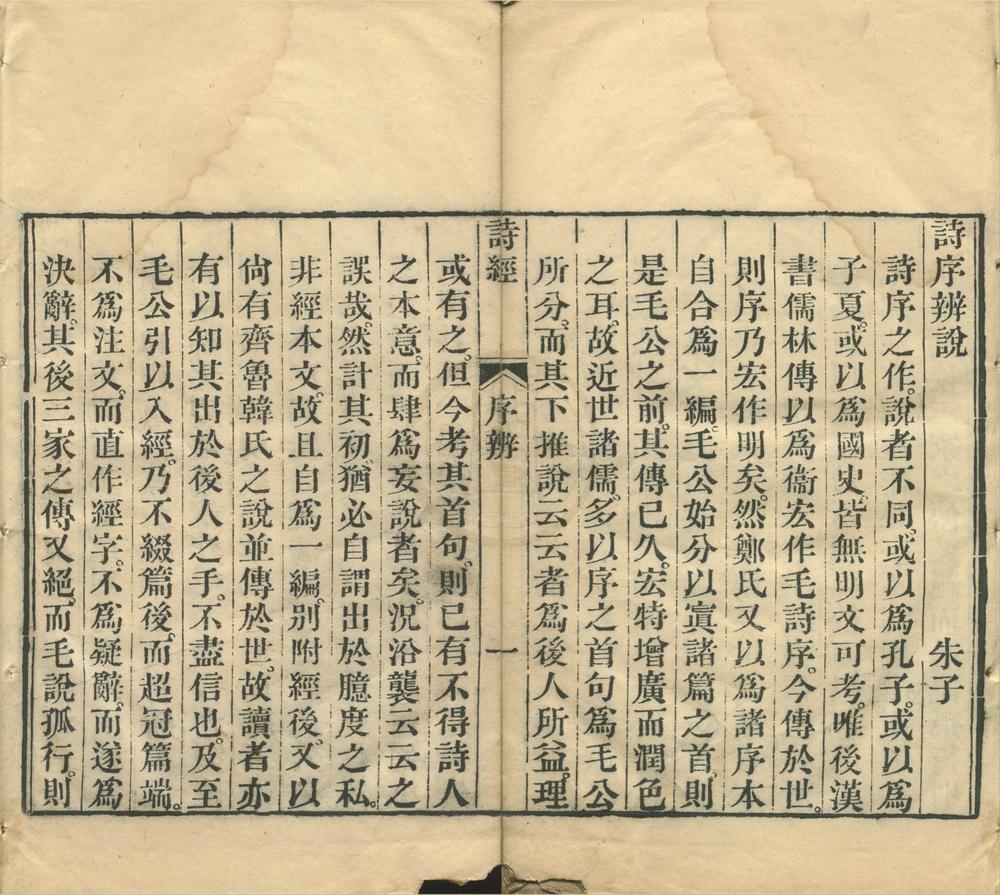 詩序辨說　朱子
詩序之作。說者不同。或以爲孔子。或以爲
子夏。或以爲國史。皆無明文可考。唯後漢
書儒林傳以爲衞宏作毛詩序。今傳於世。
則序乃宏作明矣。然鄭氏又以爲諸序本
自合爲一編。毛公始分以寘諸篇之首。則
是毛公之前。其傳已久。宏特增廣而潤色
之耳。故近世諸儒。多以序之首句爲毛公
所分。而其下推說云云者爲後人所益。理
詩經　序辨　一
或有之。但今考其首句。則已有不得詩人
之本意。而肆爲妄說者矣。況沿襲云云之
誤哉。然計其初。猶必自謂出於臆度之私。
非經本文。故且自爲一編。別附經後。又以
尙有齊魯韓氏之說並傳於世。故讀者亦
有以知其出於後人之手。不盡信也。及至
毛公引以入經。乃不綴篇後。而超冠篇端。
不爲注文。而直作經字。不爲疑辭。而遂爲
決辭。其後三家之傳又絕。而毛說孤行。則